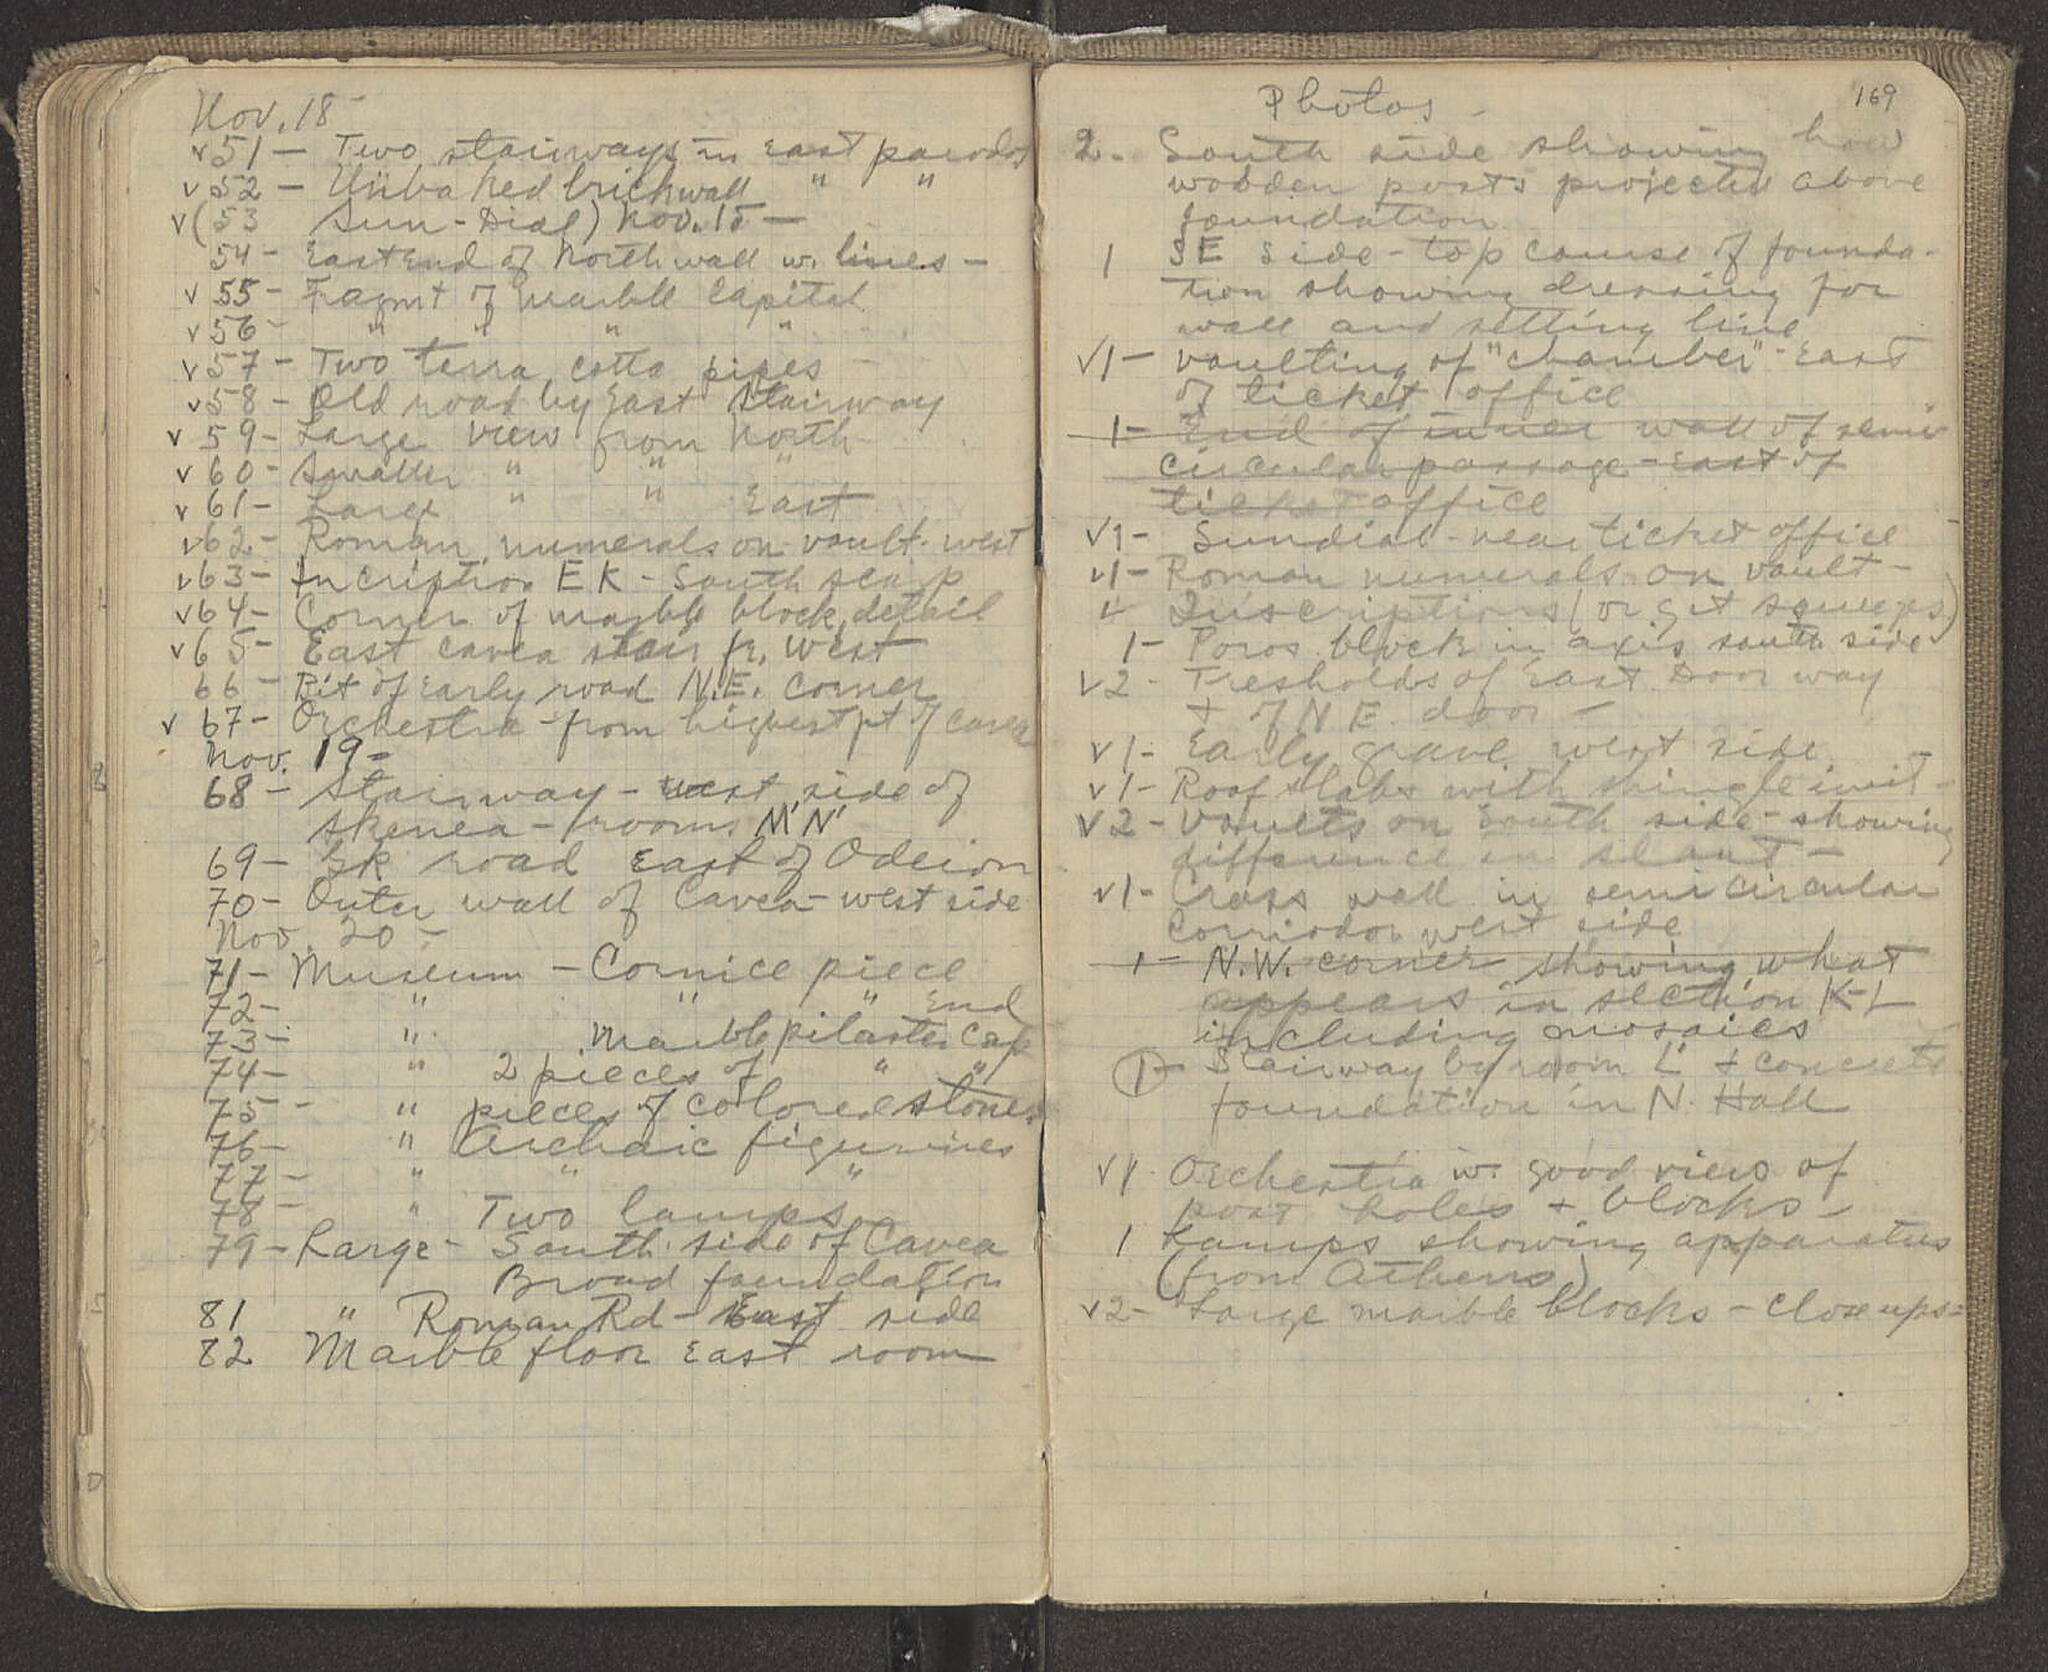 Nov. 18 -
v 51 - Two stairways in East parodos
v 52 - Unbaked brick wall " "
v (53 Sun-Dial) Nov. 15 -
54 - East End of North wall w. lines -
v 55 - Fragmt of Marble Capital
v 56 - " " " "
v 57 - Two terra cotta pipes -
v 58 - Old road by East Stairway
v 59 - Large view from North
v 60 - Smaller " " "
v 61 - Large " " East
v 62 - Roman numerals on vault - west
v 63 - Incription EK - South scarp
v 64 - Corner of marble block, detail
v 65 - East cavea stair fr. West
66 - Bit of Early road N.E. Corner
v 67 - Orchestra - from highest pt of Cavea
Nov. 19 -
68 - Stairway - west side of
skenea - rooms M'N'
69 - Gk road East of Odeion
70 - Outer wall of Cavea - west side
Nov. 20 -
71 - Museum - Cornice piece
72 - " " " End
73 - " Marble pilaster Cap
74 - " 2 pieces of " "
75 - " pieces of colored stones
76 - " Archaic figurines
77 - " " "
78 - " Two lamps
79 - Large - South side of Cavea
Broad foundation
81 " Roman Rd - East side
82 Marble floor East room
Photos - 169
2. South side showing how
wooden posts projected above
foundation
1 SE side - top course of founda-
tion showing dressing for
wall and setting line
v1 - vaulting of "chamber" - East
of ticket office
1 - End of inner wall of semi
circular passage - East of
ticket office
v1 - Sundial - near ticket office
v1 - Roman numerals on vault -
v Inscriptions (or get squeezes)
1 - Poros block in axis south side
v2 - Tresholds of East Door way
+ of N E. door -
v1 - Early grave west side
v1 - Roof slabs with shingle imit -
v2 - Vaults on South side - showing
difference in slant -
v1 - Cross wall in semi circular
Corridor west side
1 - N.W. corner showing what
appears in section K-L
including mosaics
1 - Stairway by room L' + concrete
foundation in N. Hall
v1 - Orchestra w. good view of
post holes + blocks -
1 Lamps showing apparatus
(from Athens)
v2 - Large marble blocks - Close ups =